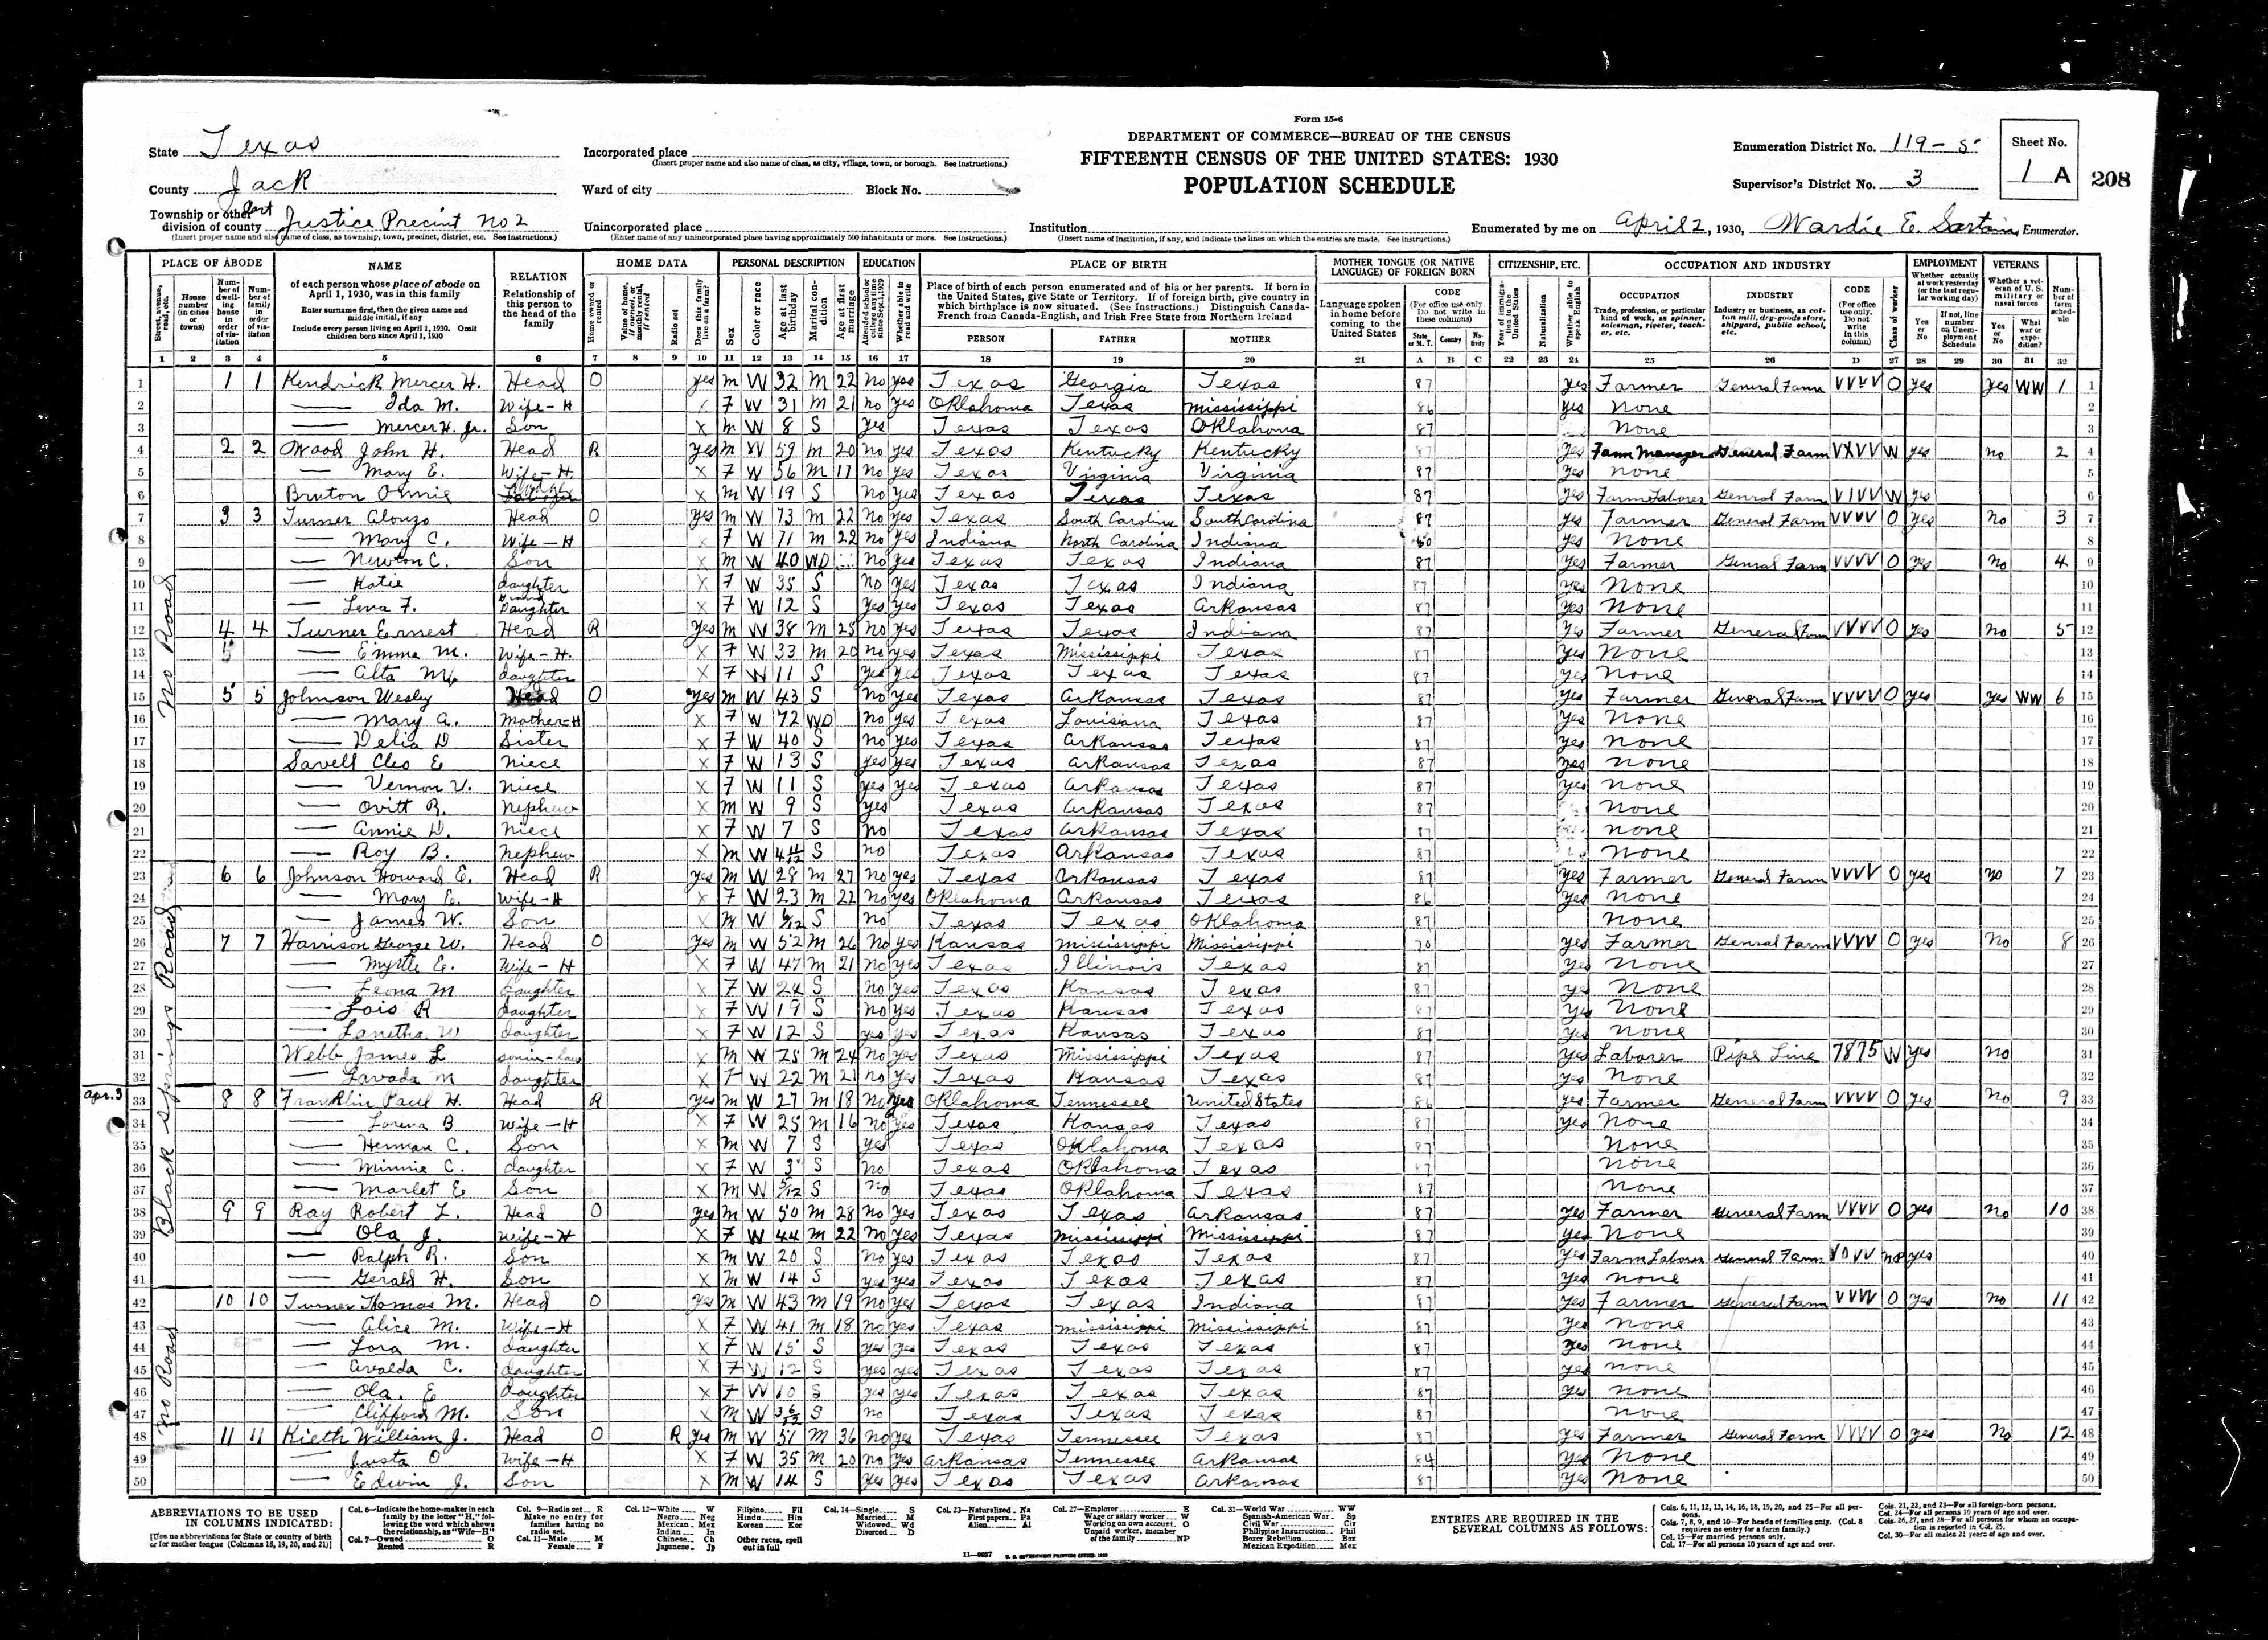 Form 15-6
DEPARTMENT OF COMMERCE—BUREAU OF THE CENSUS
FIFTEENTH CENSUS OF THE UNITED STATES: 1930
POPULATION SCHEDULE
State Texas
County Jack
Township or other division of county Part Justice Precint No 2
(Insert proper name and also name of class, as township, town, precinct, district, etc. See instructions.)
Incorporated place
(Insert proper name and also name of class, as city, village, town, or borough. See instructions.)
Ward of city Block No.
Unincorporated place
(Enter name of any unincorporated place having approximately 500 inhabitants or more. See instructions.)
Institution
(Insert name of institution, if any, and indicate the lines on which the entries are made. See instructions.)
Enumeration District No. 119-5
Supervisor's District No. 3
Sheet No. 1 A
208
Enumerated by me on April 2, 1930, Wardie E. Sartain, Enumerator.
PLACE OF ABODE NAME RELATION HOME DATA PERSONAL DESCRIPTION EDUCATION PLACE OF BIRTH MOTHER TONGUE (OR NATIVE LANGUAGE) OF FOREIGN BORN CITIZENSHIP, ETC. OCCUPATION AND INDUSTRY EMPLOYMENT VETERANS
1 1 1 Kendrick Mercer H. Head O yes M W 32 M 22 no yes Texas Georgia Texas 87 yes Farmer General Farm VVVV O yes yes WW 1 1
2 Ida M. Wife-H F W 31 M 21 no yes Oklahoma Texas Mississippi 86 yes None 2
3 Mercer H. Jr. Son X M W 8 S yes Texas Texas Oklahoma 87 None 3
4 2 2 Wood John H. Head R yes M W 59 M 20 no yes Texas Kentucky Kentucky 87 yes Farm Manager General Farm VXVV W yes no 2 4
5 Mary E. Wife-H X F W 56 M 17 no yes Texas Virginia Virginia 87 yes None 5
6 Bruton Onnie X M W 19 S no yes Texas Texas Texas 87 yes Farm Laborer General Farm VIVV W yes 6
7 3 3 Turner Alonzo Head O yes M W 73 M 22 no yes Texas South Carolina South Carolina 87 yes Farmer General Farm VVVV O yes no 3 7
8 Mary C. Wife-H X F W 71 M 22 no yes Indiana North Carolina Indiana 60 yes None 8
9 Newton C. Son X M W 40 WD no yes Texas Texas Indiana 87 yes Farmer General Farm VVVV O yes no 4 9
10 Katie daughter X F W 35 S no yes Texas Texas Indiana 87 yes None 10
11 Lena F. Grand Daughter X F W 12 S yes yes Texas Texas Arkansas 87 yes None 11
12 4 4 Turner Ernest Head R yes M W 38 M 25 no yes Texas Texas Indiana 87 yes Farmer General Farm VVVV O yes no 5 12
13 Emma M. Wife-H. X F W 33 M 20 no yes Texas Mississippi Texas 87 yes None 13
14 Alta M. daughter X F W 11 S yes yes Texas Texas Texas 87 yes None 14
15 5 5 Johnson Wesley Head O yes M W 43 S no yes Texas Arkansas Texas 87 yes Farmer General Farm VVVV O yes yes WW 6 15
16 Mary A. Mother-H X F W 72 WD no yes Texas Louisiana Texas 87 yes None 16
17 Delia D Sister X F W 40 S no yes Texas Arkansas Texas 87 yes None 17
18 Savell Cleo E niece X F W 13 S yes yes Texas Arkansas Texas 87 yes None 18
19 Vernon V. niece X F W 11 S yes yes Texas Arkansas Texas 87 yes None 19
20 Ovitt R. nephew X M W 9 S yes Texas Arkansas Texas 87 None 20
21 Annie D. niece X F W 7 S no Texas Arkansas Texas 87 None 21
22 Roy B. nephew X M W 4 11/12 S no Texas Arkansas Texas 87 None 22
23 6 6 Johnson Howard E. Head R yes M W 28 M 27 no yes Texas Arkansas Texas 87 yes Farmer General Farm VVVV O yes no 7 23
24 Mary E. Wife-H X F W 23 M 22 no yes Oklahoma Arkansas Texas 86 yes None 24
25 James W. Son X M W 6/12 S no Texas Texas Oklahoma 87 None 25
26 7 7 Harrison George W. Head O yes M W 52 M 26 no yes Kansas Mississippi Mississippi 70 yes Farmer General Farm VVVV O yes no 8 26
27 Myrtle E. Wife-H X F W 47 M 21 no yes Texas Illinois Texas 87 yes None 27
28 Leona M daughter X F W 24 S no yes Texas Kansas Texas 87 yes None 28
29 Lois R daughter X F W 19 S no yes Texas Kansas Texas 87 yes None 29
30 Lanetha W daughter X F W 12 S yes yes Texas Kansas Texas 87 yes None 30
31 Webb James L son-in-law X M W 25 M 24 no yes Texas Mississippi Texas 87 yes Laborer Pipe Line 7875 W yes no 31
32 Lavada M daughter X F W 22 M 21 no yes Texas Kansas Texas 87 yes None 32
Apr. 3 33 8 8 Franklin Paul H. Head R yes M W 27 M 18 no yes Oklahoma Tennessee United States 86 yes Farmer General Farm VVVV O yes no 9 33
34 Lorena B Wife-H X F W 25 M 16 no yes Texas Kansas Texas 87 yes None 34
35 Herman C. Son X M W 7 S yes Texas Oklahoma Texas 87 None 35
36 Minnie C. daughter X F W 3 S no Texas Oklahoma Texas 87 None 36
37 Marlet E Son X M W 5/12 S no Texas Oklahoma Texas 87 None 37
38 9 9 Ray Robert L. Head O yes M W 50 M 28 no yes Texas Texas Arkansas 87 yes Farmer General Farm VVVV O yes no 10 38
39 Ola J. Wife-H X F W 44 M 22 no yes Texas Mississippi Mississippi 87 yes None 39
40 Ralph R. Son X M W 20 S no yes Texas Texas Texas 87 yes Farm Laborer General Farm VOVV NP yes 40
41 Gerald H. Son X M W 14 S yes yes Texas Texas Texas 87 yes None 41
42 10 10 Turner Thomas M. Head O yes M W 43 M 19 no yes Texas Texas Indiana 87 yes Farmer General Farm VVVV O yes no 11 42
43 Alice M. Wife-H X F W 41 M 18 no yes Texas Mississippi Mississippi 87 yes None 43
44 Lora M. daughter X F W 15 S yes yes Texas Texas Texas 87 yes None 44
45 Avalda C. daughter X F W 12 S yes yes Texas Texas Texas 87 yes None 45
46 Ola E daughter X F W 10 S yes yes Texas Texas Texas 87 yes None 46
47 Clifford M. Son X M W 3 6/12 S no Texas Texas Texas 87 None 47
48 11 11 Kieth William J. Head O R yes M W 51 M 36 no yes Texas Tennessee Texas 87 yes Farmer General Farm VVVV O yes no 12 48
49 Justa O Wife-H X F W 35 M 20 no yes Arkansas Tennessee Arkansas 84 yes None 49
50 Edwin J. Son X M W 14 S yes yes Texas Texas Arkansas 87 yes None 50
No Road
Black Springs Road
No Road
ABBREVIATIONS TO BE USED IN COLUMNS INDICATED:
[Use no abbreviations for State or country of birth or for mother tongue (Columns 18, 19, 20, and 21)]
ENTRIES ARE REQUIRED IN THE SEVERAL COLUMNS AS FOLLOWS: